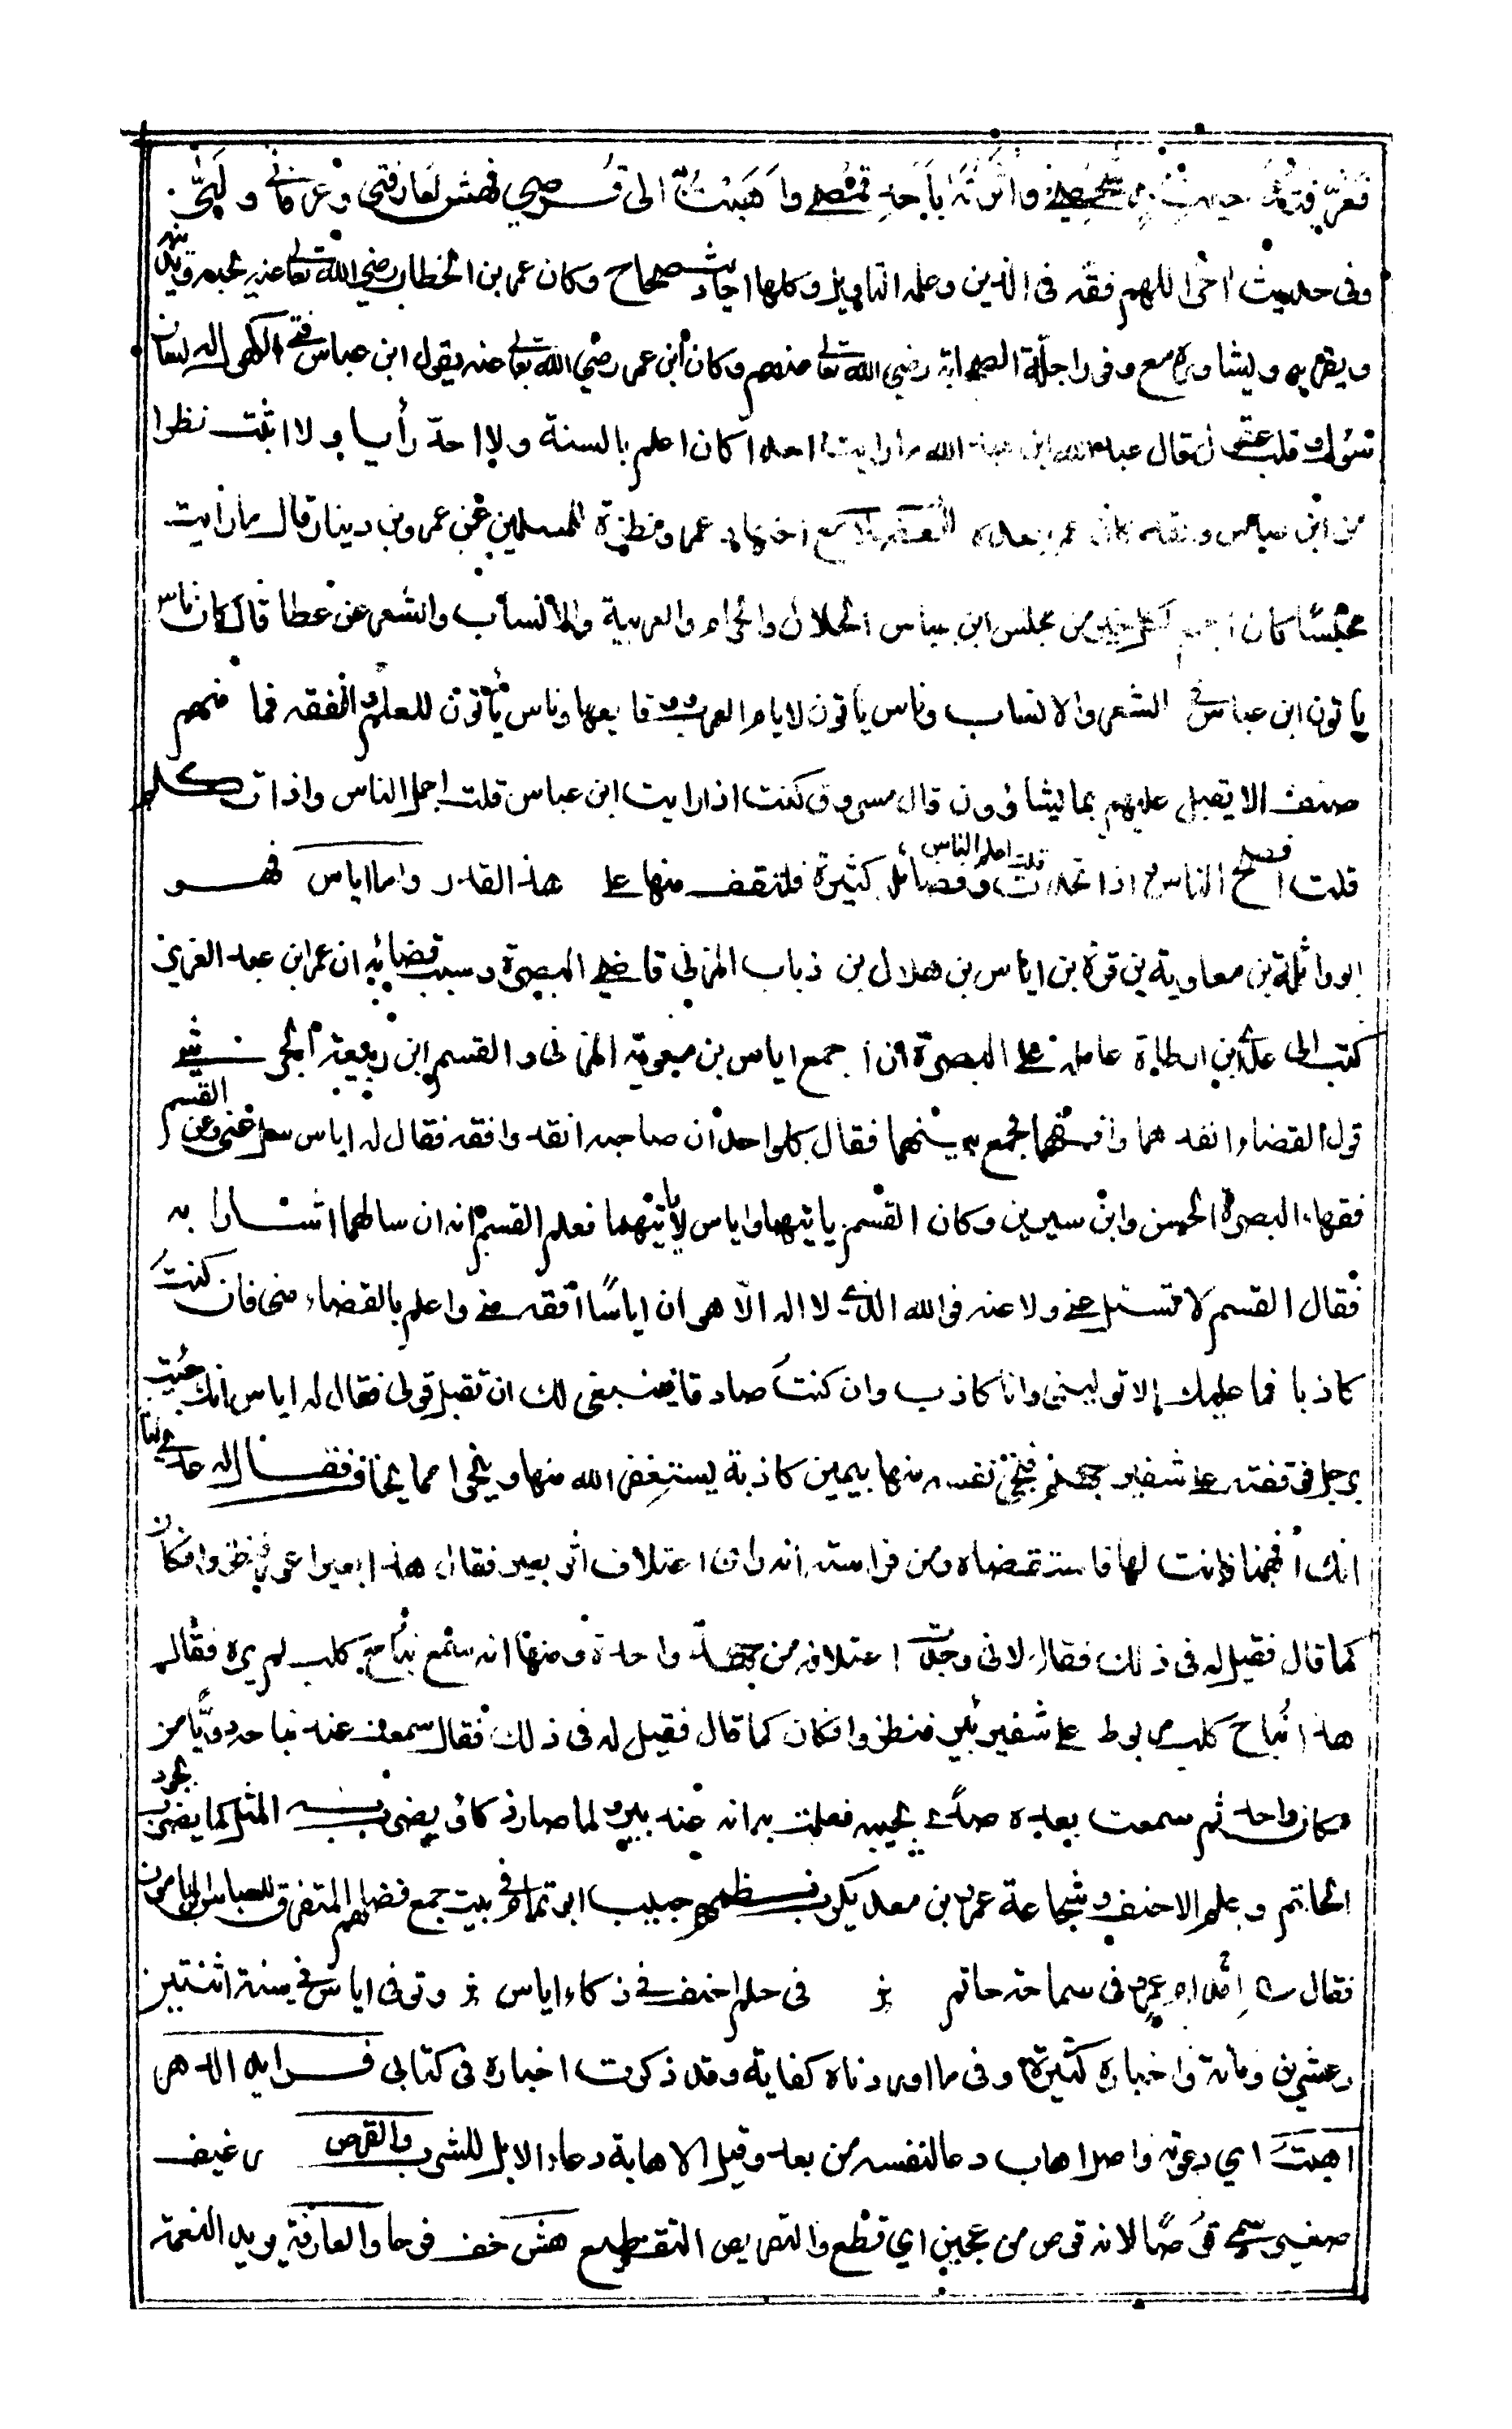 فعرّفته حينئذ شخصي واثرته باحد قمصي واهبت به الى قرصي فهش لعارفتي وعرفاني ولبّى
وفى حديث اخر اللهم فقهه فى الدين وعلمه التاويل وكلها احاديث صحاح وكان عمر بن الخطاب رضي الله تعالى عنه يحبه ويدنيه
ويقربه ويشاوره مع وفور اجلّة الصحابة رضي الله تعالى عنهم وكان ابن عمر رضي الله تعالى عنه يقول ابن عباس فتى الكهول له لسان
سؤل وقلب عقول قال عبد الله ابن عبد الله ما رايت احدا كان اعلم بالسنة ولا احدّ رأيا ولا اثبت نظرا
من ابن عباس ولقد كان عمر يعده للمعضلات مع اجتهاد عمر ونظره للمسلمين عن عمرو بن دينار قال ما رايت
مجلسًا كان اجمع لكل خير من مجلس ابن عباس الحلال والحرام والعربية والانساب والشعر عن عطا قال كان ناس
ياتون ابن عباس فى الشعر والانساب وناس ياتون لايام العرب ووقايعها وناس يأتون للعلم والفقه فما منهم
صنف الا يقبل عليهم بما يشاؤون قال مسروق كنت اذا رايت ابن عباس قلت اجمل الناس واذا تكلم
قلت افصح الناس واذا تحدث قلت اعلم الناس وفضائل كثيرة فلنقف منها على هذا القدر واما اياس فهو
ابو واثلة بن معاوية بن قرة بن اياس بن هلال بن ذباب المزني قاضي البصرة وسبب قضائه ان عمر ابن عبد العزيز
كتب الى عدى ابن ارطاة عامله على البصرة ان اجمع اياس بن معوية المزنى والقسم ابن ربيعة الجرشي
فول القضاء انفذهما وافقههما فجمع بينهما فقال كل واحد ان صاحبه انفذ وافقه فقال له اياس سل عنى وعن القسم
فقهاء البصرة الحسن وابن سيرين وكان القسم ياتيهما واياس لا ياتيهما فعلم القسم انه ان سالهما اشارا به
فقال القسم لا تسئل عنى ولا عنه فوالله الذى لا اله الا هو ان اياسًا افقه منى واعلم بالقضاء منى فان كنتُ
كاذبا فما عليك الا توليني وانا كاذب وان كنتُ صادقا فينبغي لك ان تقبل قولى فقال له اياس انك جئت
برجل فوقفته على شفير جهنم فنجى نفسه منها بيمين كاذبة يستغفر الله منها وينجى مما يخاف فقال له عدى اما
انك اذ فهمتها فانت لها فاستقضاه ومن فراسته انه راى اعتلاف اثر بعير فقال هذا بعير اعور فنظروا فكان
كما قال فقيل له فى ذلك فقال لانى وجدت اعتلافه من جهة واحدة ومنها انه سمع نباح كلب لم يره فقال
هذا نباح كلب مربوط على شفير بئر فنظروا فكان كما قال فقيل له فى ذلك فقال سمعت عند نباحه دويًّا من
مكان واحد ثم سمعت بعده صدى يجيبه فعلمت به انه عند بير ولما صار ذكاؤه يضرب به المثل كما يضرب بجود
الحاتم وبحلم الاحنف وشجاعة عمرو بن معديكرب نظمهم حبيب ابو تمام فى بيت جمع فضائلهم المتفرق للعباس المامون
فقال ؎ اقدام عمرو فى سماحة حاتم ؞ فى حلم احنف فى ذكاء اياس ؞ وتوفى اياس فى سنة اثنتين
وعشرين ومائة واخباره كثيرة وفى ما اوردناه كفاية وقد ذكرت اخباره فى كتابى فرايد الدهر
اهبتُ اي دعوته واصل اهاب دعا لنفسه من بعد وقيل الاهابة دعاء الابل للشرب والقرص رغيف
صغير سمى قرصًا لانه قرص من عجين اي قطع والتقريص التقطيع هش خف فرحا والعارفة يريد النعمة